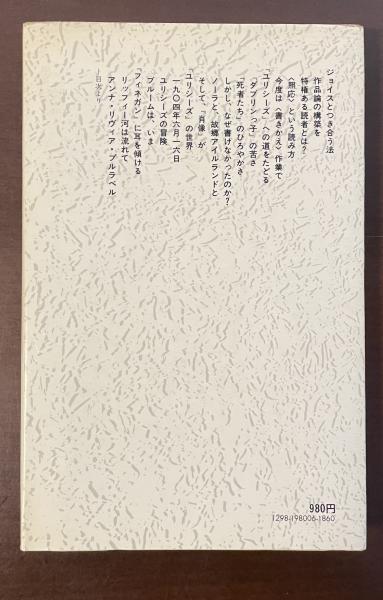 ジョイスとつき合う法
作品論の構築を
特権ある読者とは？
〈照応〉という読み方
今度は〈書きかえ〉作業で
『ユリシーズ』への道をたどる
『ダブリンっ子』の苦さ
『死者たち』のひろやかさ
しかし、なぜ書けなかったのか？
ノーラと、故郷アイルランドと
そして、『肖像』が
『ユリシーズ』の世界
一九〇四年六月一六日
ユリシーズの冒険
ブルームは、いま
『フィネガン』に耳を傾ける
リッフィー河は流れて
アンナ・リヴィア・プルラベル
―目次より―
980円
1298-198006-1860